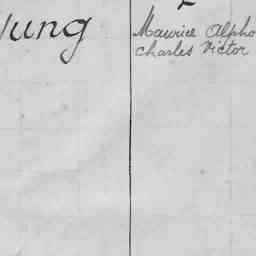 Jung
Maurice Alpho
Charles Victor